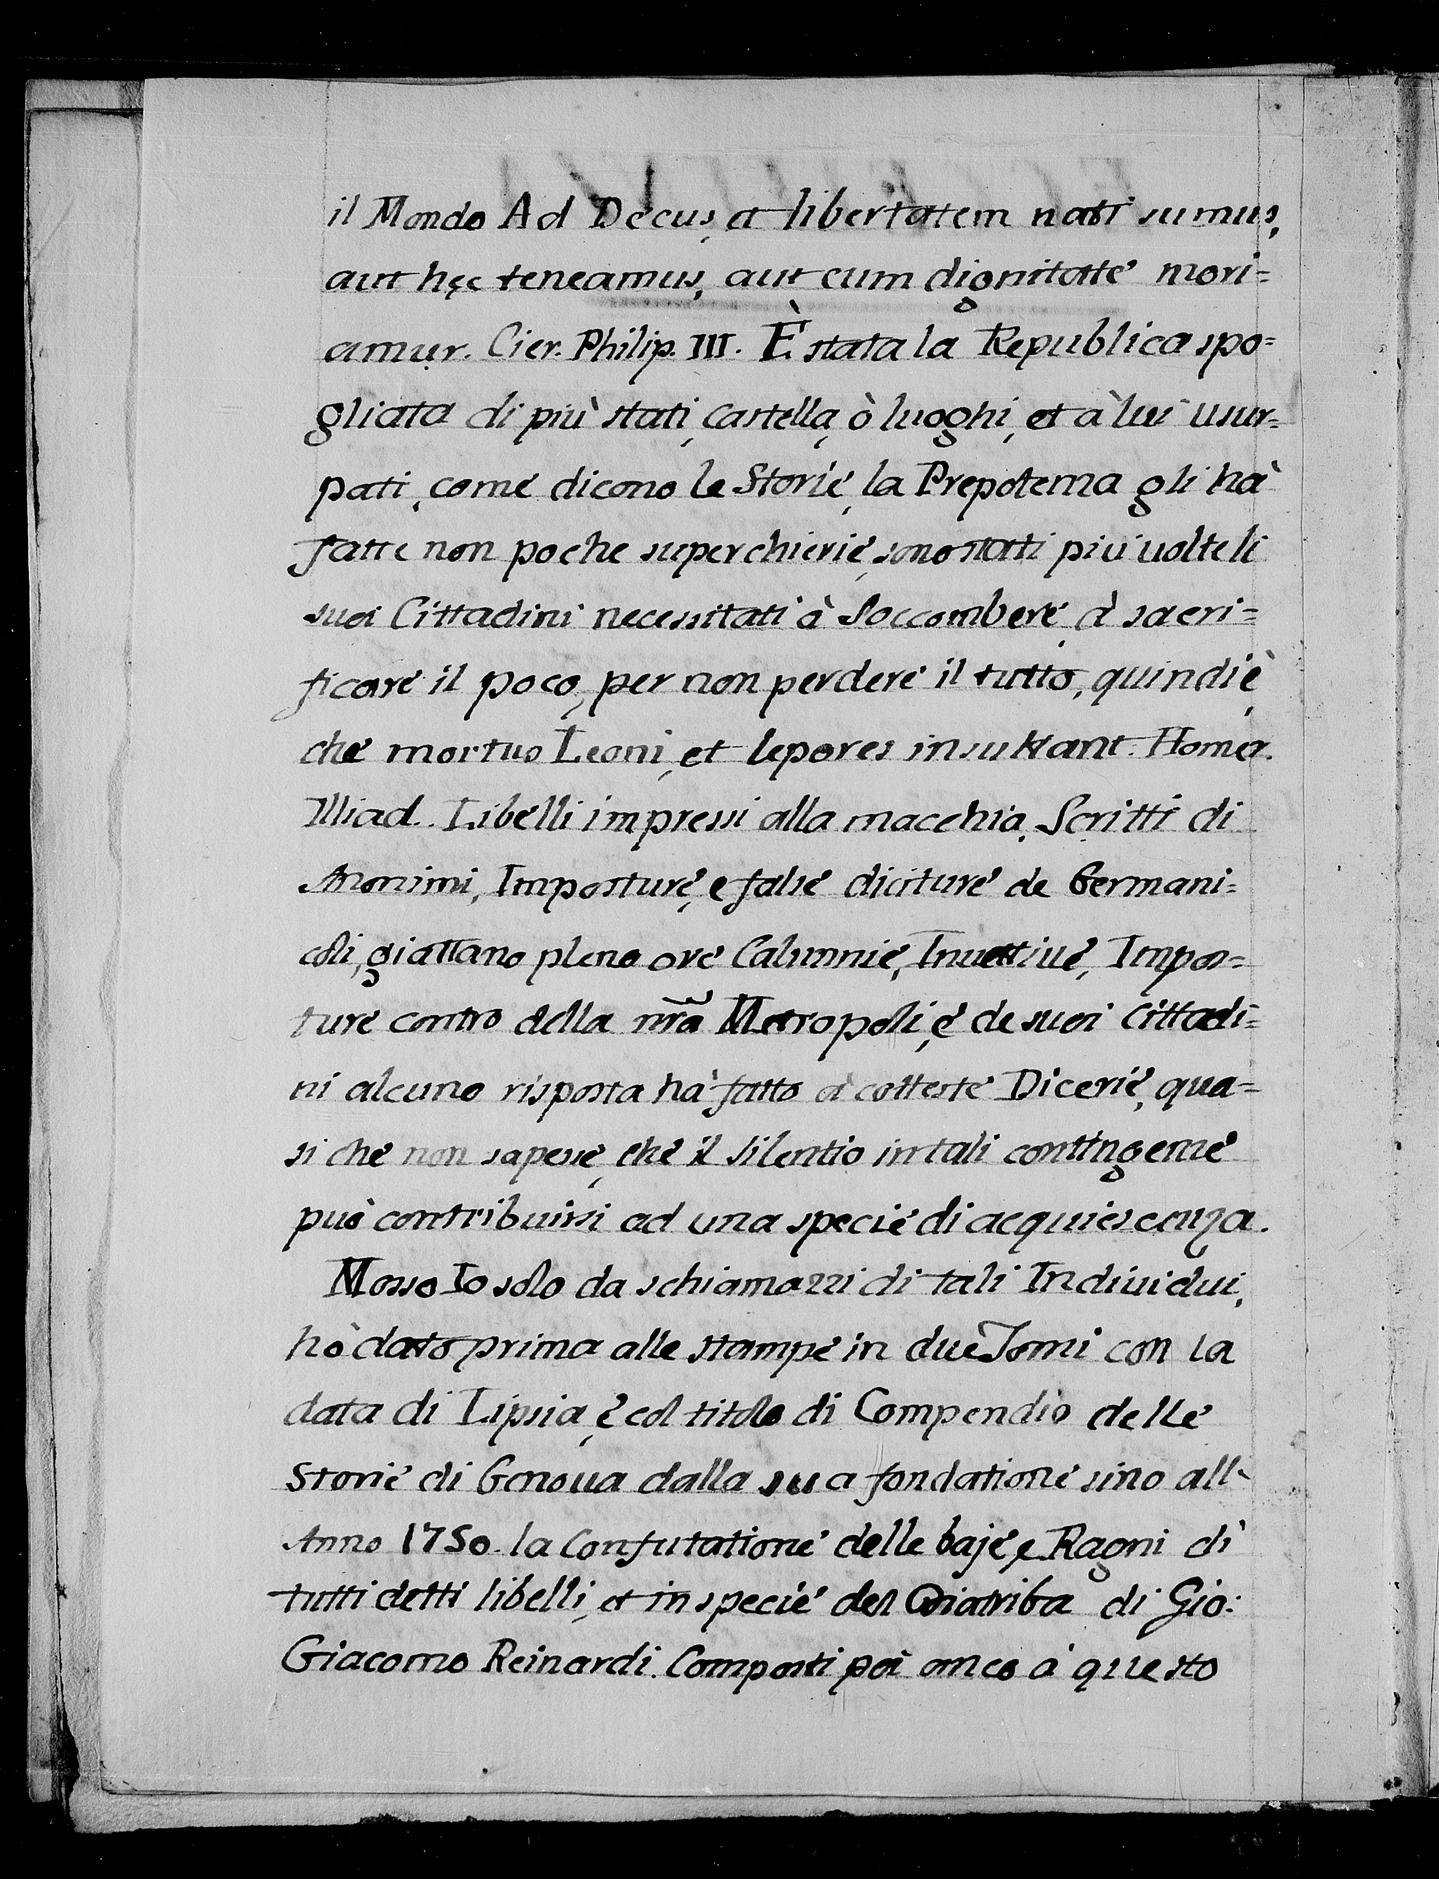 il Mondo Ad Decus, et libertatem nati sumus,
aut hęc teneamus, aut cum dignitate mori=
amur. Cier. Philip. III. È stata la Republica spo=
gliata di più stati, castella, ò luoghi, et à lui usur=
pati, come dicono le Storie, la Prepotenza gli hà
fatte non poche superchierie, sono stati più uolte li
suoi Cittadini necessitati à Soccombere, à sacri=
ficare il poco, per non perdere il tutto, quindi è,
che mortuo Leoni, et lepores insultant. Homer.
Illiad. Libelli impressi alla macchia, Scritti di
Anonimi, Imposture, e false diciture de Germani=
coli, giattano pleno ore Calunnie, Inuettiue, Impos=
ture contro della nr̃a Metropoli, e de suoi Cittadi=
ni alcuno risposta hà fatto à cotteste Dicerie, qua=
si che non sapesse, che il silentio in tali contingenze
può contribuirsi ad una specie di acquiescenza.
Mosso Io solo da schiamazzi di tali Indiuidui,
hò dato prima alle stampe in due Tomi con la
data di Lipsia, è col titolo di Compendio delle
Storie di Genoua dalla sua fondatione sino all'
Anno 1750. la Confutatione delle baje, e Ragni di
tutti detti libelli, et in specie del Diatriba di Gio:
Giacomo Reinardi. Composti poi anco à questo